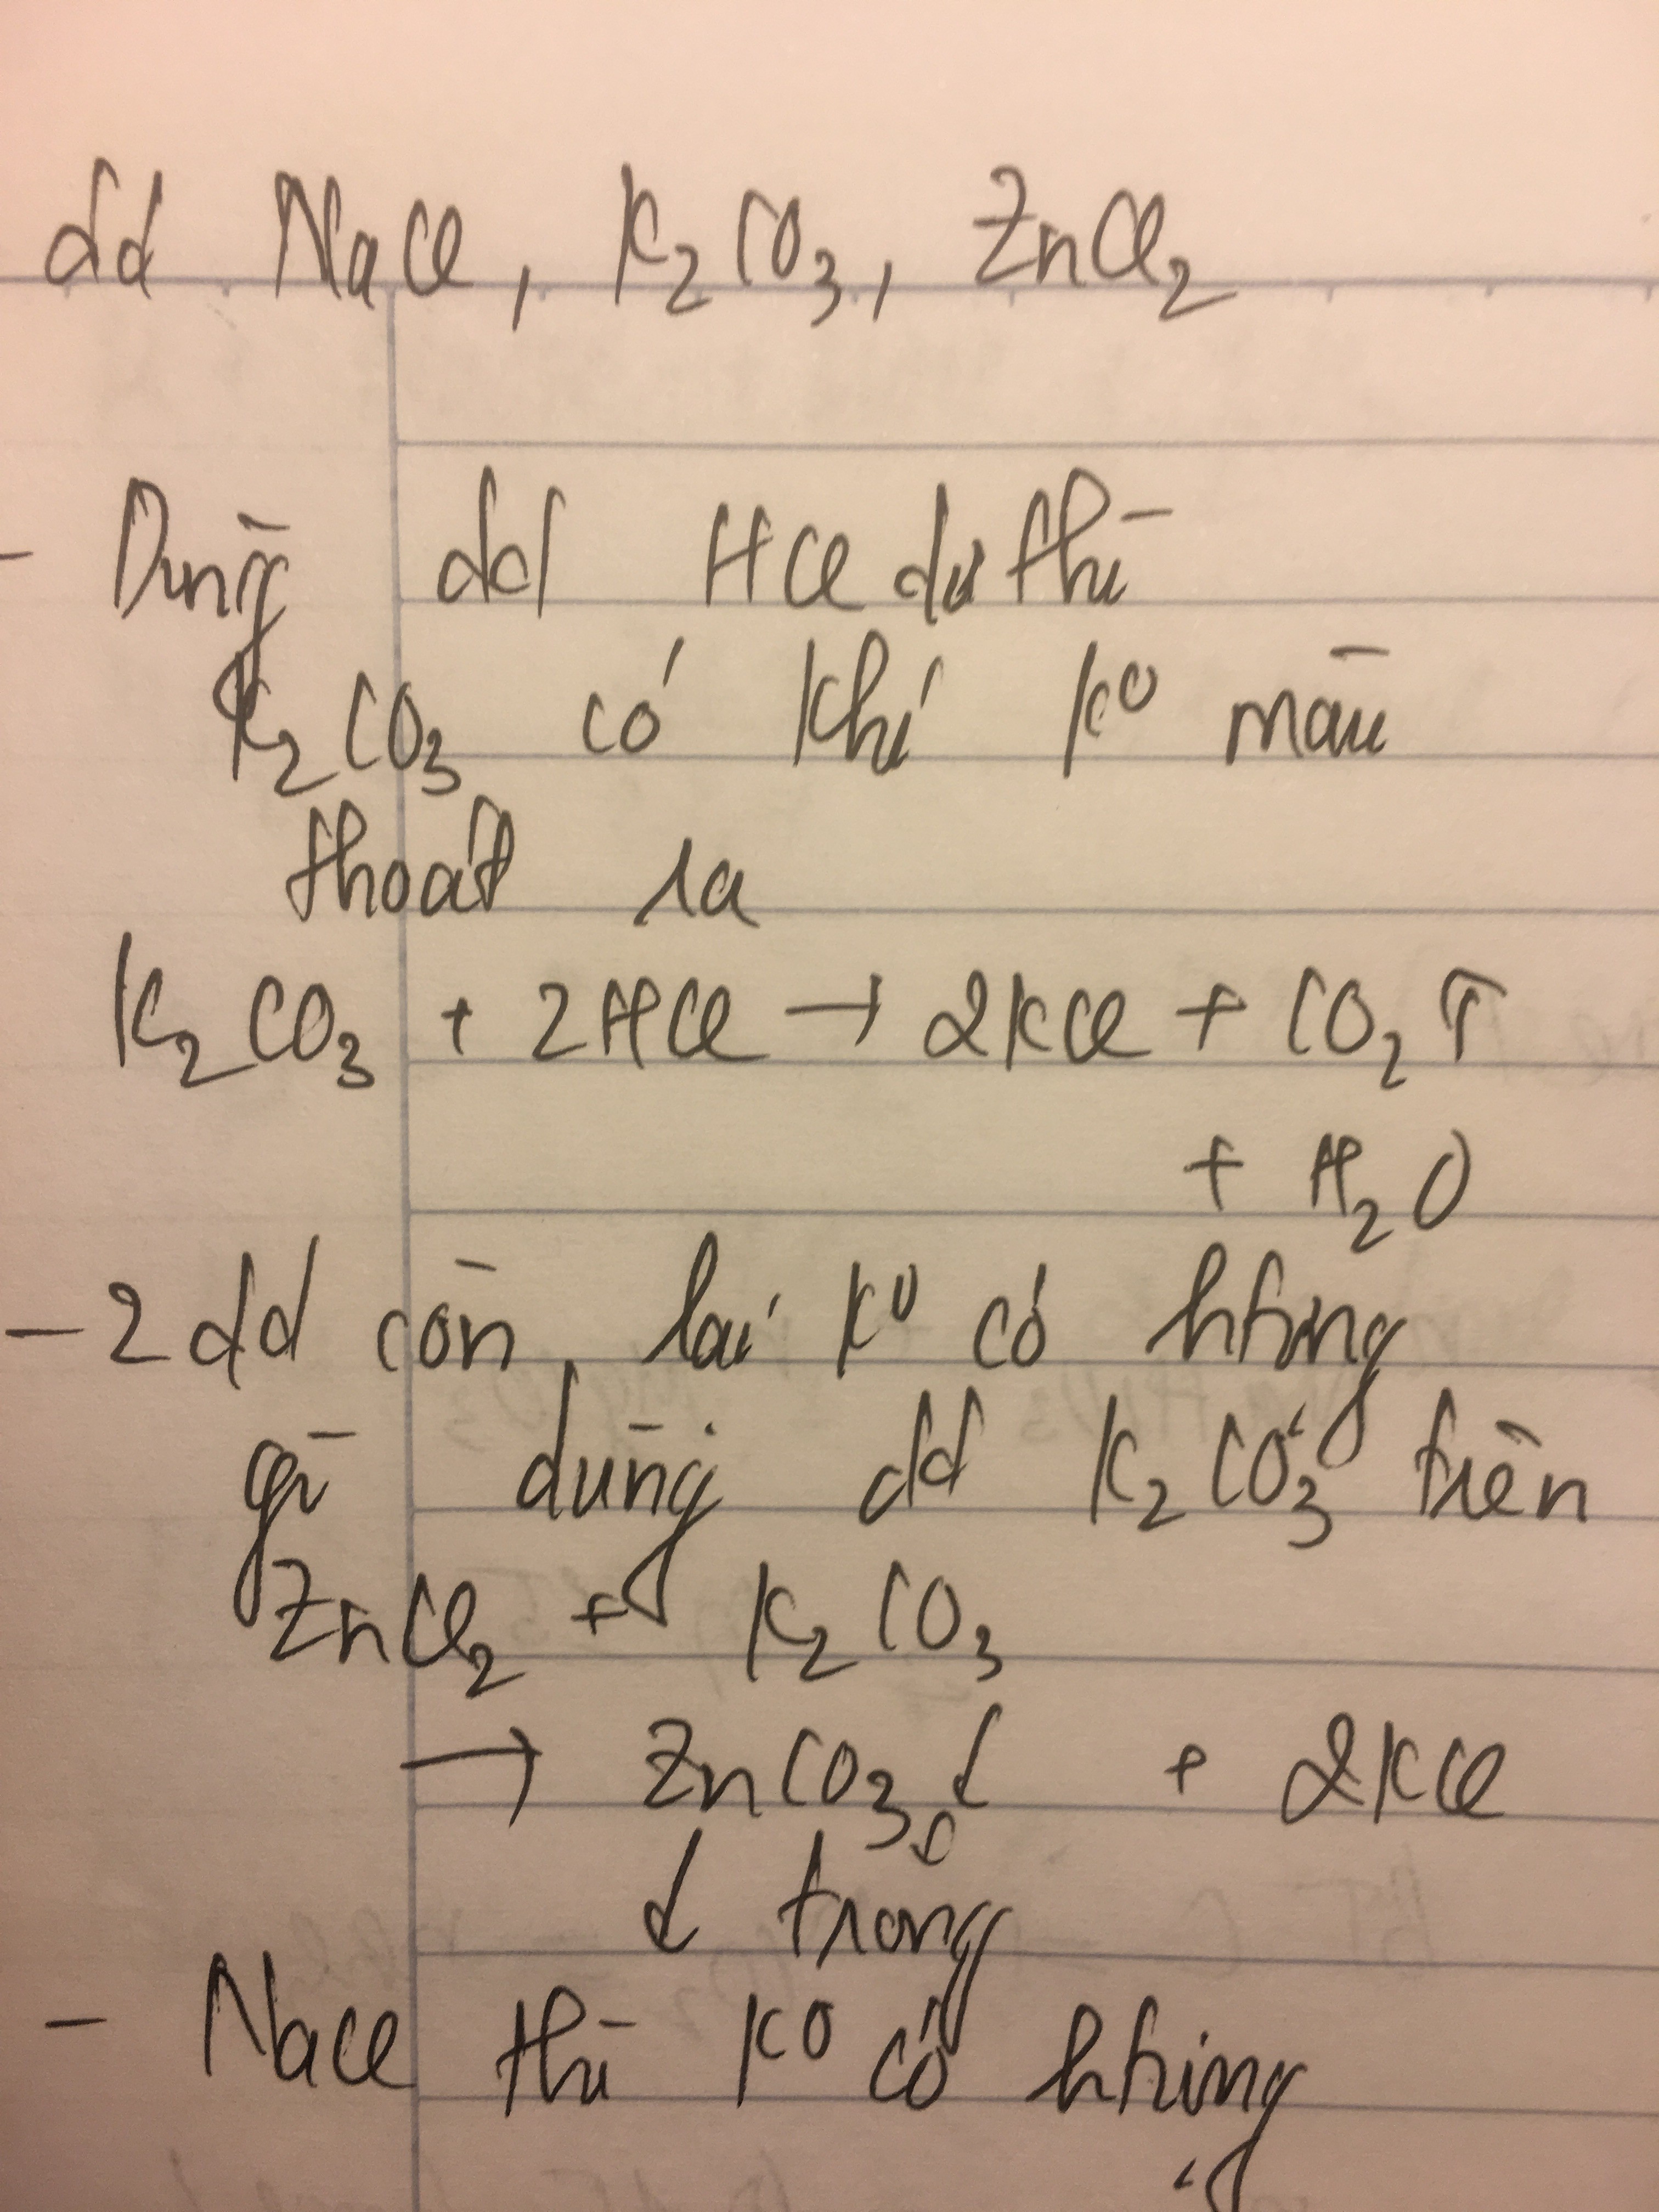 dd NaCl, K₂CO₃, ZnCl₂
- Dùng dd HCl dư thì
K₂CO₃ có khí kº màu
thoát ra
K₂CO₃ + 2HCl → 2KCl + CO₂ ↑
+ H₂O
- 2 dd còn lại kº có htưng
gì dùng dd K₂CO₃ trên
ZnCl₂ + K₂CO₃
→ ZnCO₃ ↓ + 2KCl
↓ trắng
- NaCl thì kº có htưng